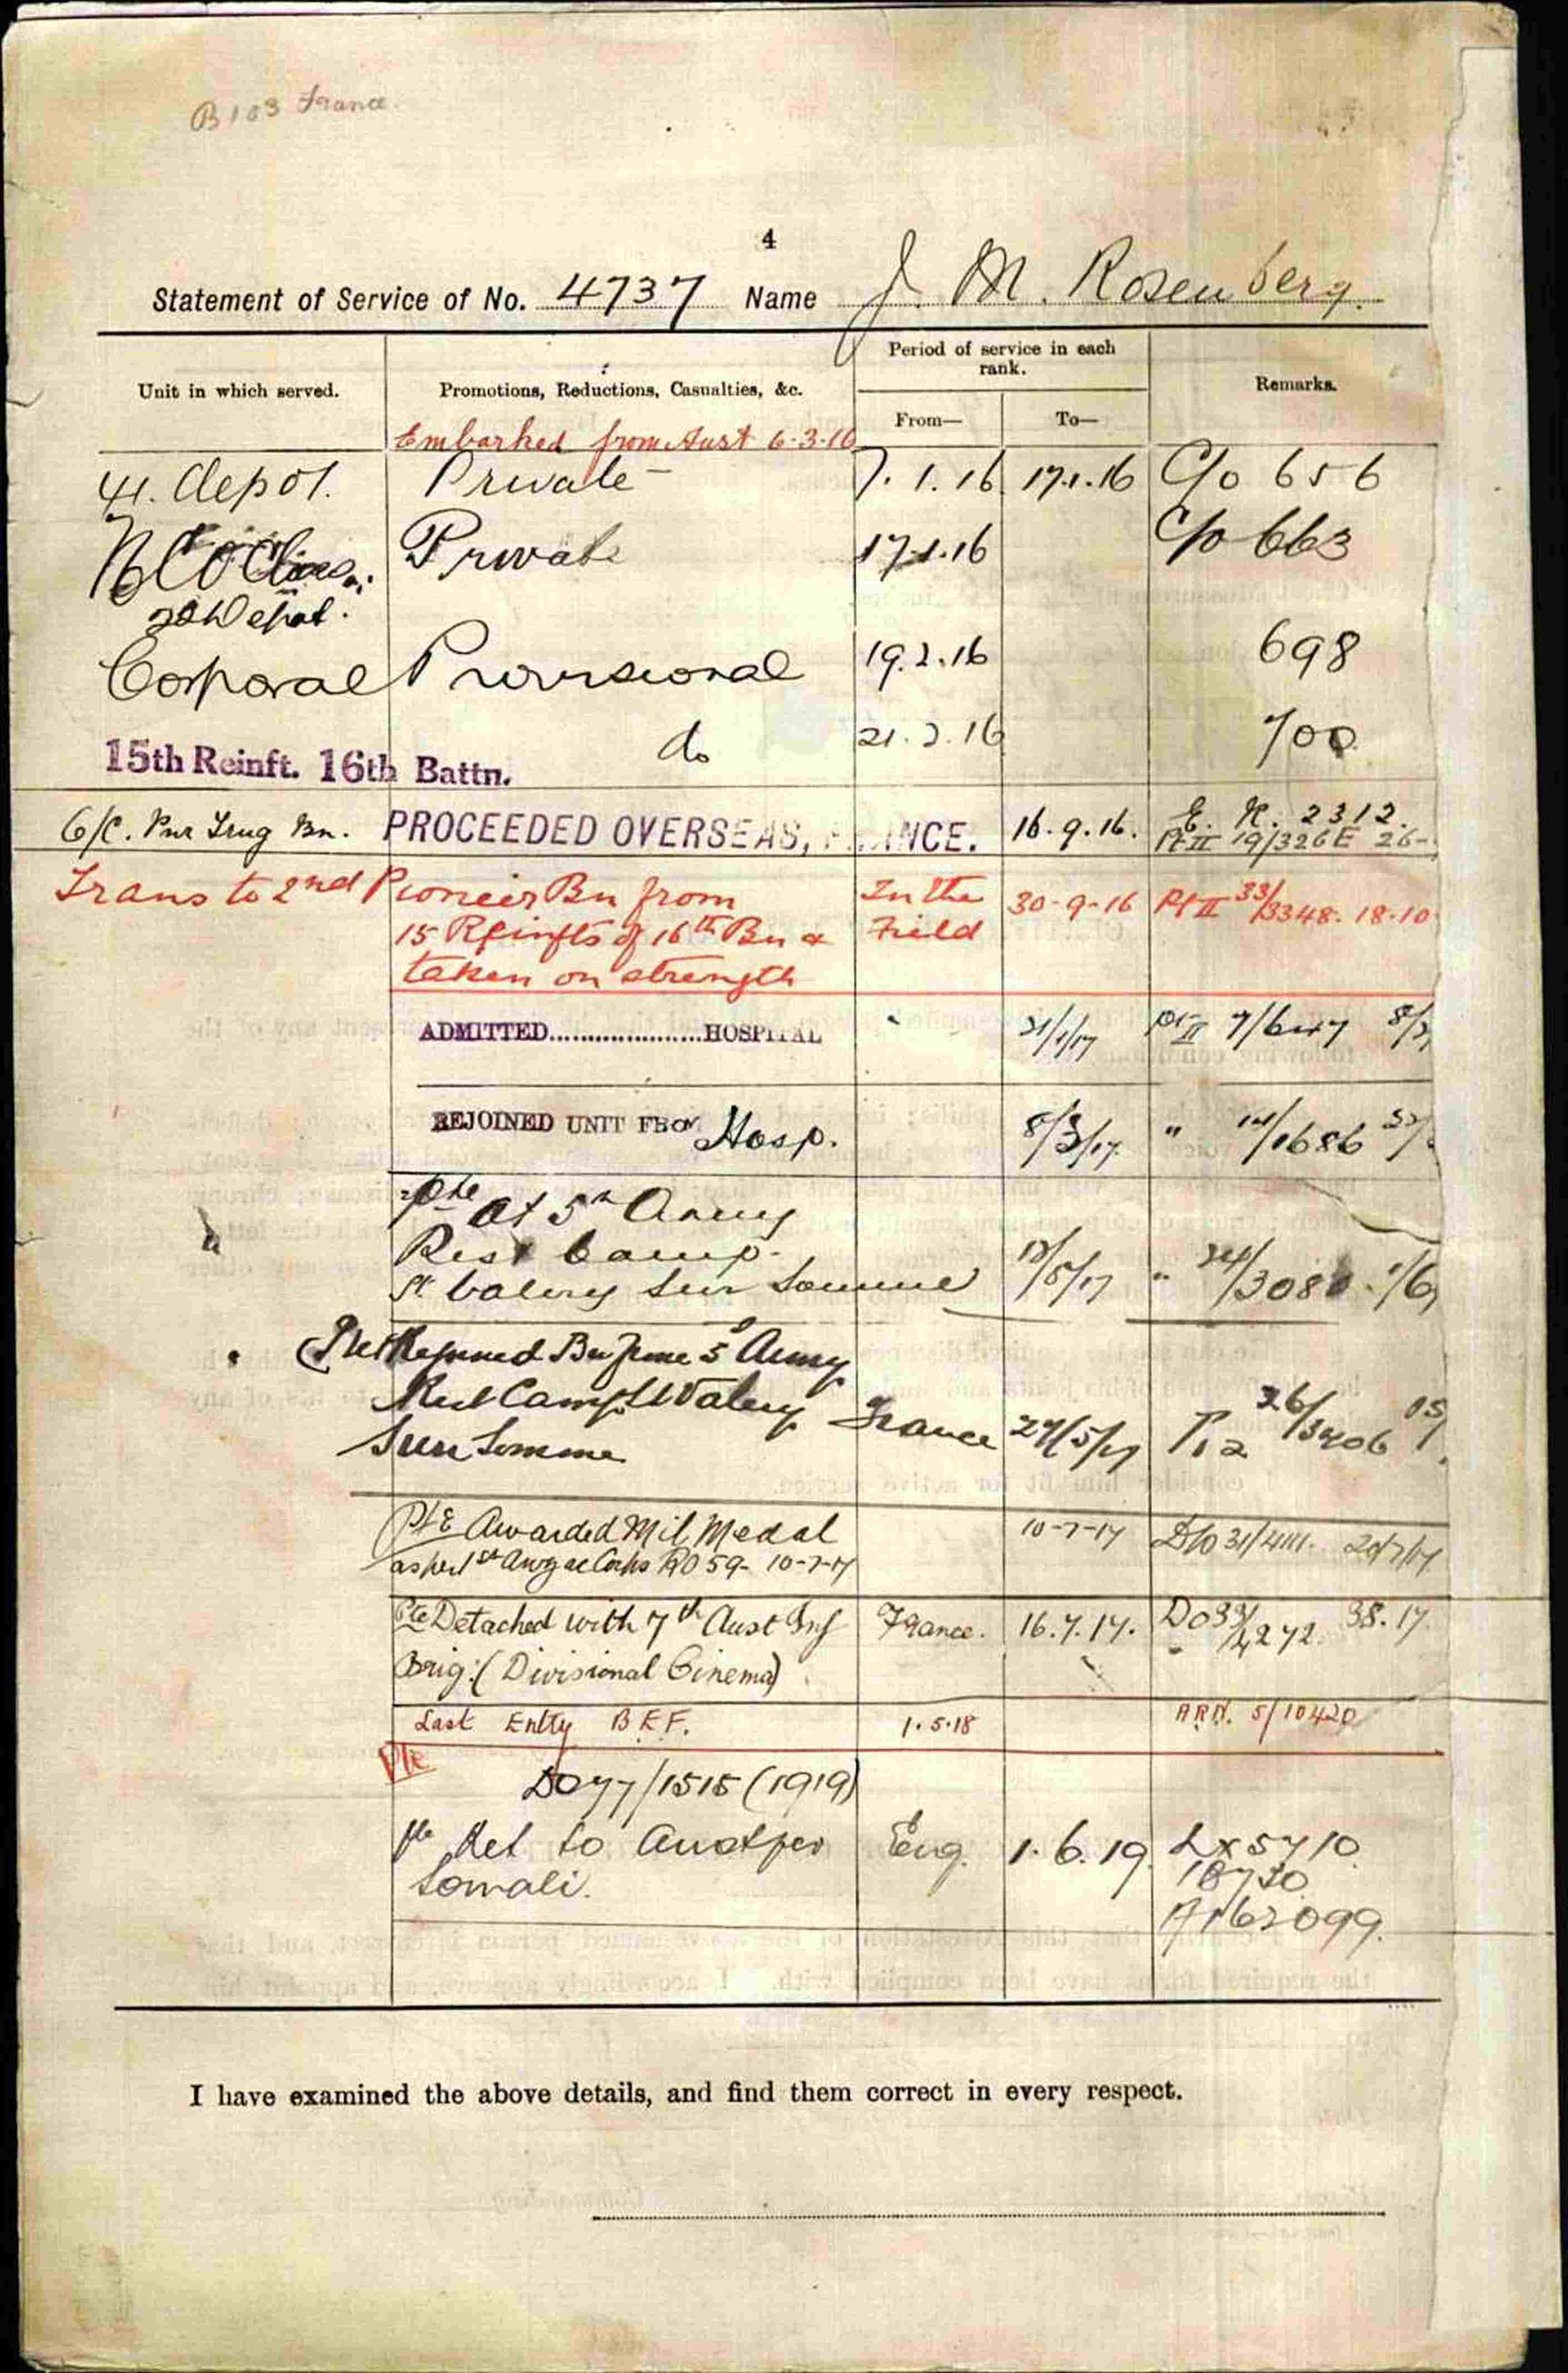 B103 France.
4
Statement of Service of No. 4737 Name J. M. Rosenberg.
Unit in which served. Promotions, Reductions, Casualties, &c. Period of service in each rank. From— To— Remarks.
Embarked from Aust 6-3-16
41. depot. Private 7.1.16 17.1.16 C/o 656
N C O Class. Private 17.1.16 C/o 663
Depot.
Corporal Provisional 19.2.16 698
15th Reinft. 16th Battn. do 21.2.16 700
Pnr Trng Bn. PROCEEDED OVERSEAS, FRANCE. 16.9.16. E. R. 2312.
Pt II 19/326E 26-
Trans to 2nd Pioneer Bn from In the Field 30-9-16 Pt II 33/3348. 18.10
15 Reinfts of 16th Bn &
taken on strength
ADMITTED....................HOSPITAL 21/1/17 Pt II 7/647
REJOINED UNIT FROM Hosp. 8/3/17. " 14/1686
Pte At 5th Army
Rest Camp.
St Valery Sur Somme 13/5/17 " 24/3080 1/6
Pte Rejoined Bn from 5 Army
Rest Camp St Valery France 27/5/17 26/3406
Sur Somme
Pte Awarded Mil Medal 10-7-17 D/O 31/4111. 20/7/17.
as per 1st Anzac Corps RO 59- 10-7-17
Pte Detached with 7th Aust Inf France. 16.7.17. DO 33/4272. 3.8.17.
Brig: (Divisional Cinema)
Last Entry B.E.F. 1.5.18 A.R.N. 5/10420
Pte
DO 77/1515 (1919)
Pte Ret to Aust per Eng. 1.6.19. LX5710.
Somali. 18730
A162099.
I have examined the above details, and find them correct in every respect.